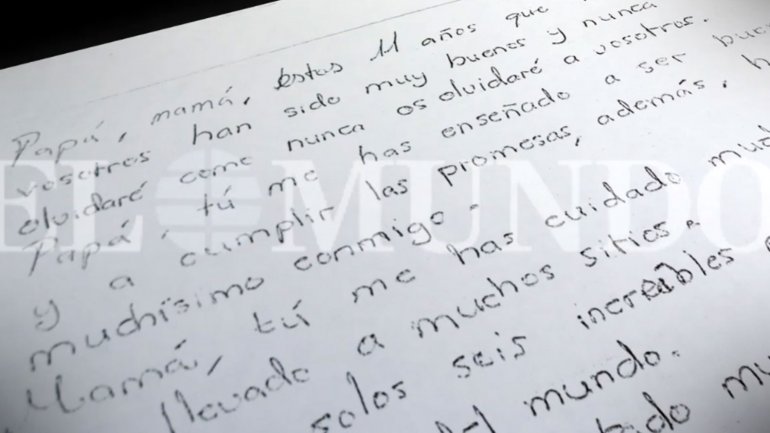 Papá, mamá, éstos 11 años que
vosotros han sido muy buenos y nunca
olvidaré como nunca os olvidaré a vosotros.
Papá, tú me has enseñado a ser
y a cumplir las promesas, además,
muchísimo conmigo.
Mamá, tú me has cuidado
llevado a muchos sitios.
solos seis increíbles
mundo.
EL MUNDO